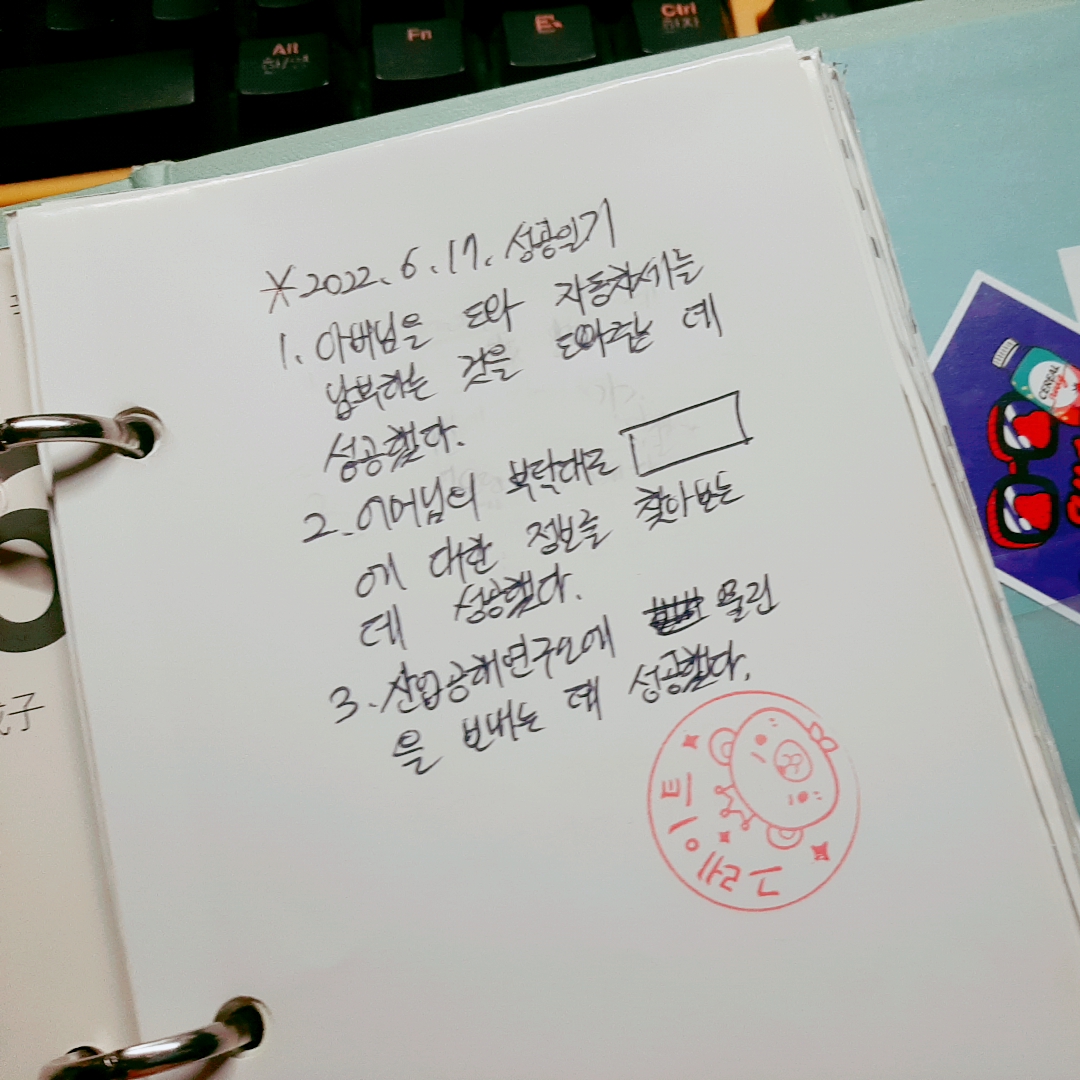 Alt
한/영
Fn
Ctrl
한자
※2022. 6. 17. 성공일기
1. 아버님을 도와 자동차세를
납부하는 것을 도와주는 데
성공했다.
2. 어머님의 부탁대로
에 대한 정보를 찾아보는
데 성공했다.
3. 산업공해연구소에 물건
을 보내는 데 성공했다.
그레이트
CEREAL
子